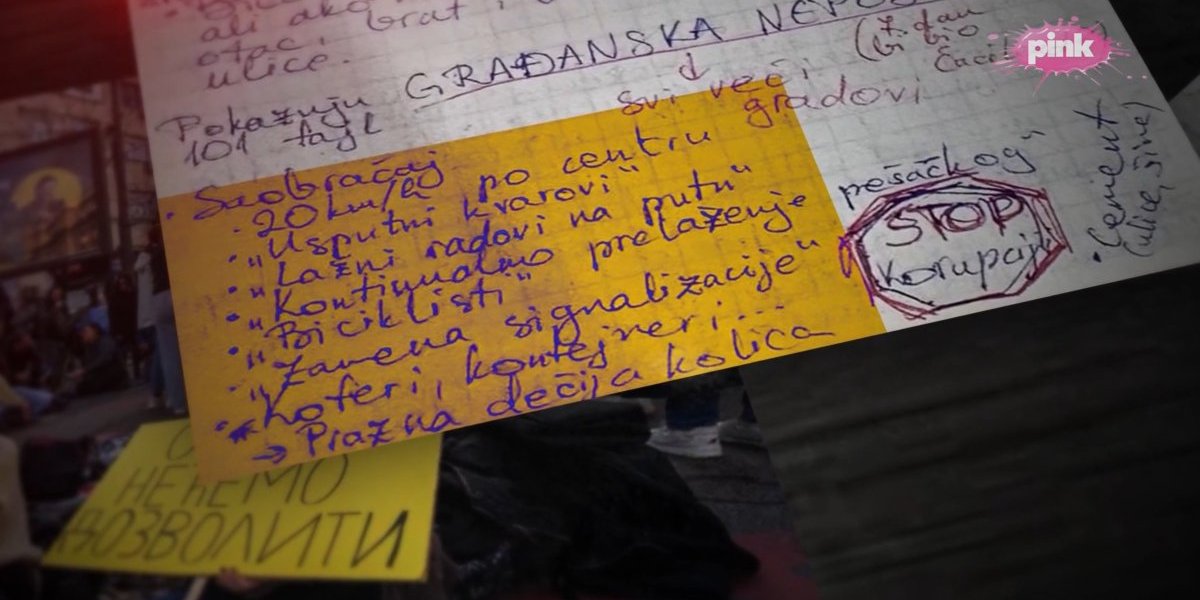 ali ako
otac, brat i
ulice.
GRAĐANSKA
(7. dan
bi bio
pink
Pokazuju
101 tajl
svi veći
gradovi
• Saobraćaj
• 20 km/h po centru
• „Usputni kvarovi"
• „Lažni radovi na putu"
• „Kontinualno prelaženje pešačkog"
• „Biciklisti"
• „Zamena signalizacije"
• Koferi, kontejneri...
→ Prazna dečija kolica
STOP
Korupciji
• Cement
(ulice, šine)
НЕЋЕМО
ДОЗВОЛИТИ